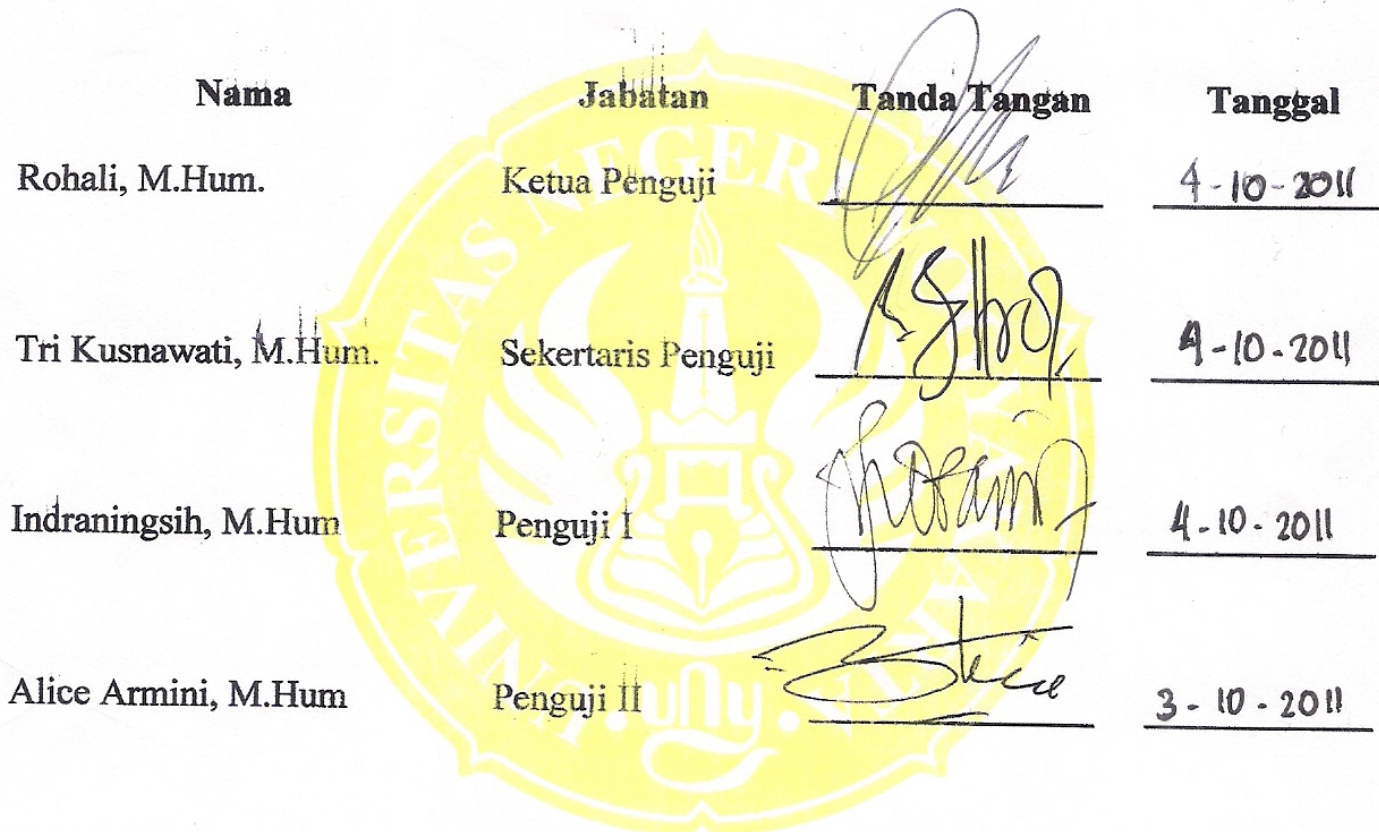 Nama Jabatan Tanda Tangan Tanggal
Rohali, M.Hum. Ketua Penguji 4-10-2011
Tri Kusnawati, M.Hum. Sekertaris Penguji 4-10-2011
Indraningsih, M.Hum Penguji I 4-10-2011
Alice Armini, M.Hum Penguji II 3-10-2011
UNIVERSITAS NEGERI YOGYAKARTA
uny